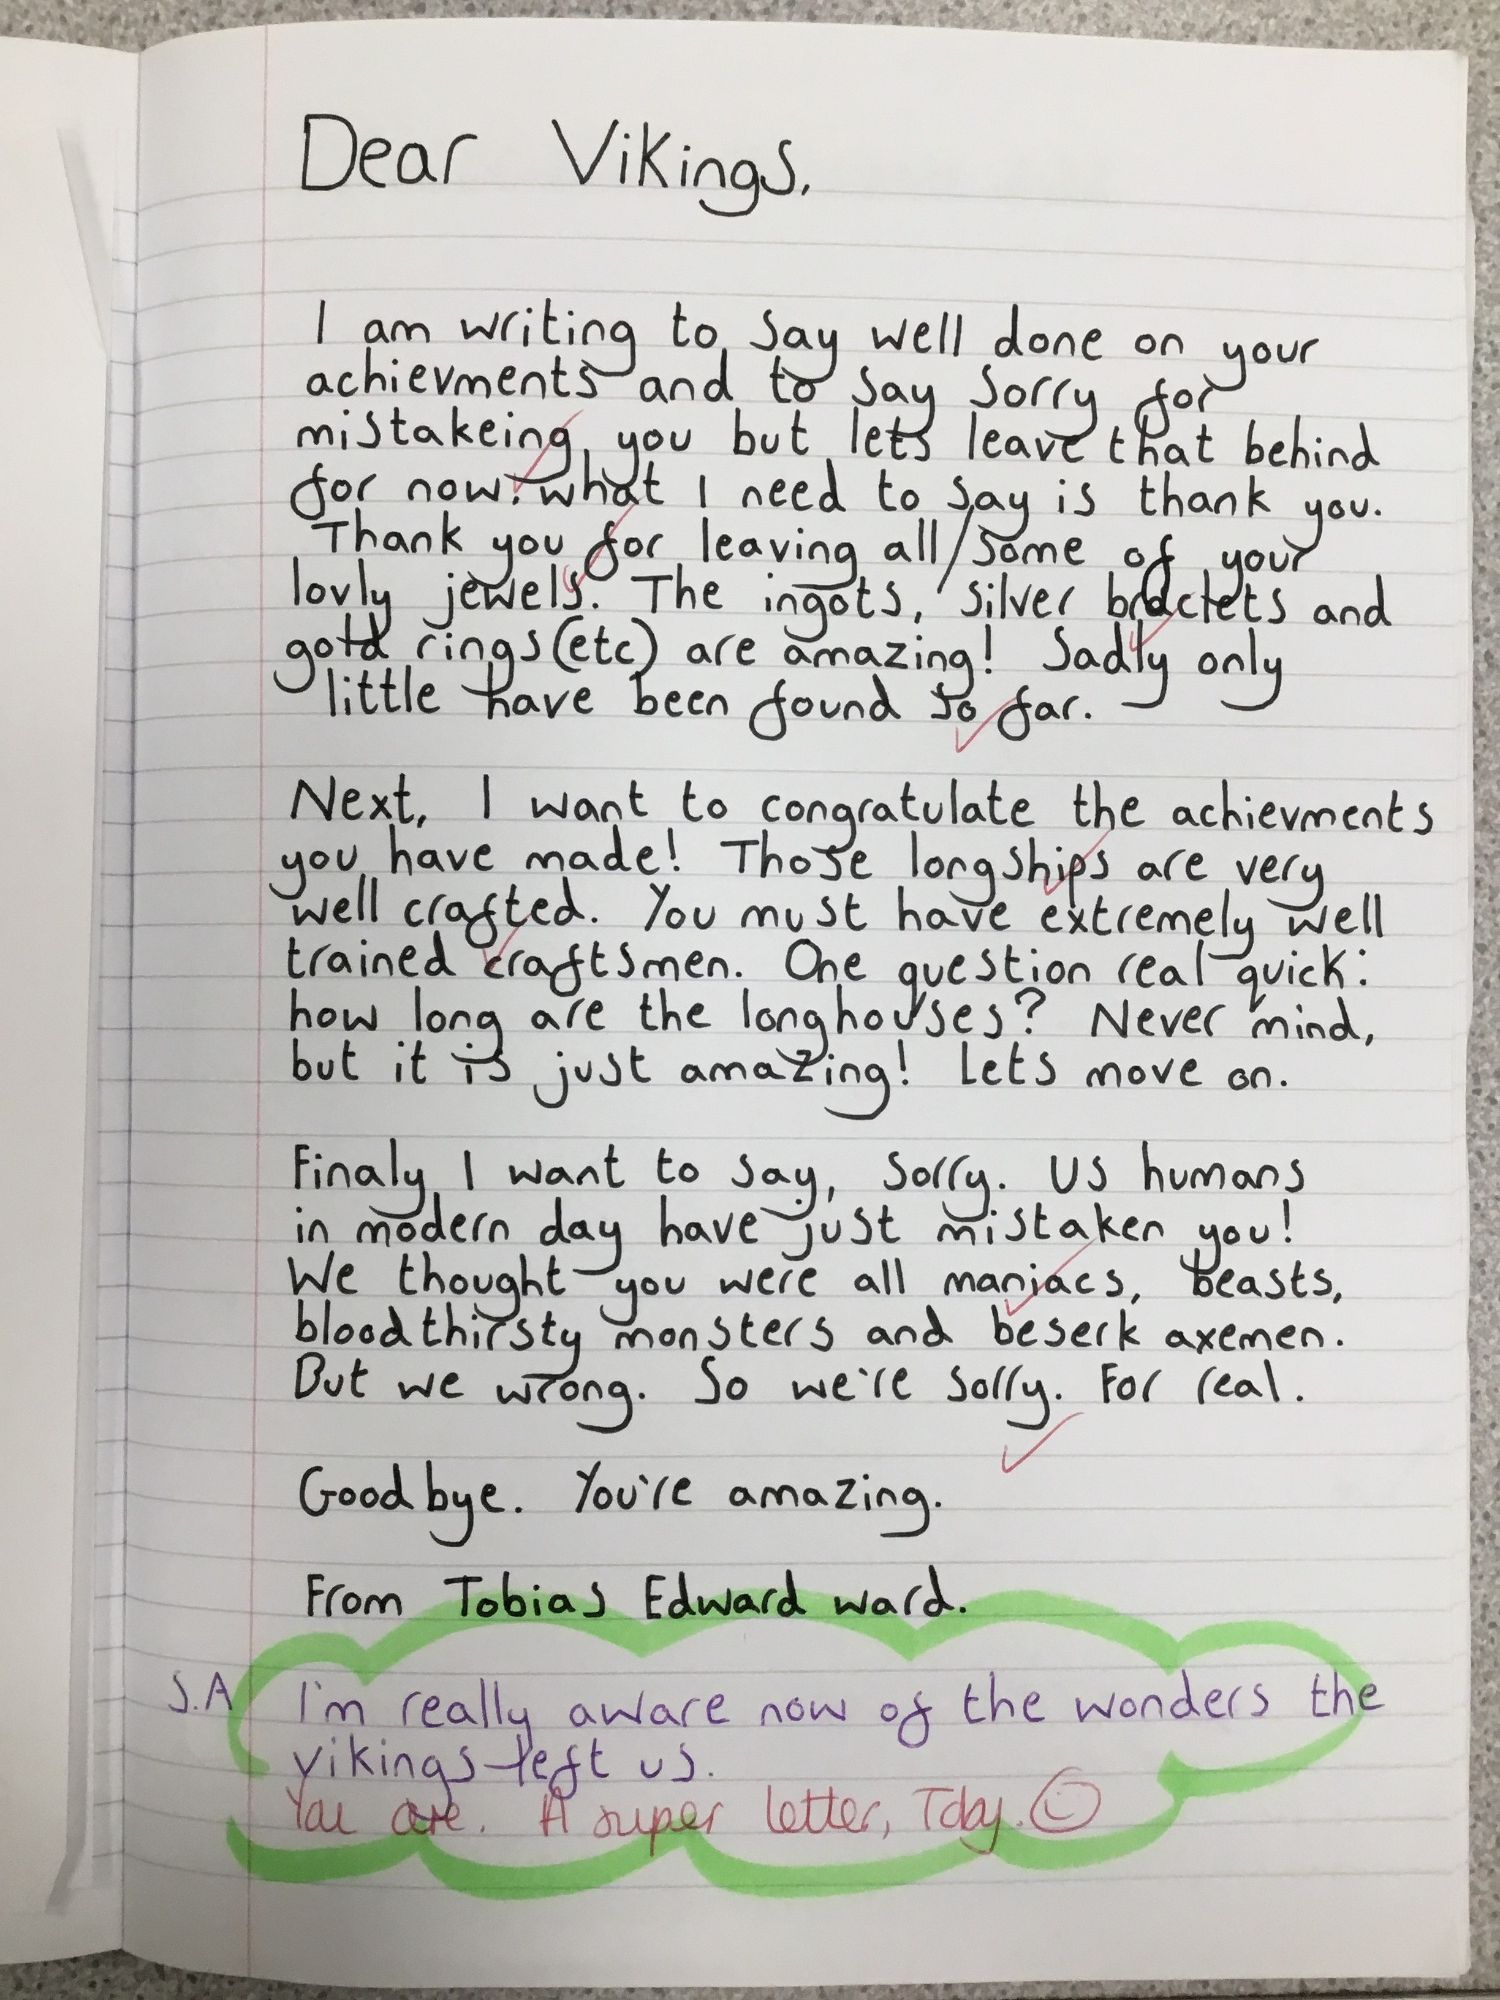 Dear Vikings,
I am writing to say well done on your
achievments and to say sorry for
mistakeing you but lets leave that behind
for now. what I need to say is thank you.
Thank you for leaving all/some of your
lovly jewels. The ingots, silver braclets and
gold rings(etc) are amazing! Sadly only
little have been found so far.
Next, I want to congratulate the achievments
you have made! Those longships are very
well crafted. You must have extremely well
trained craftsmen. One question real quick:
how long are the longhouses? Never mind,
but it is just amazing! Lets move on.
Finaly I want to say, sorry. Us humans
in modern day have just mistaken you!
We thought you were all maniacs, beasts,
bloodthirsty monsters and beserk axemen.
But we wrong. So we're sorry. For real.
Goodbye. You're amazing.
From Tobias Edward ward.
S.A I'm really aware now of the wonders the
vikings left us.
You are. A super letter, Toby.